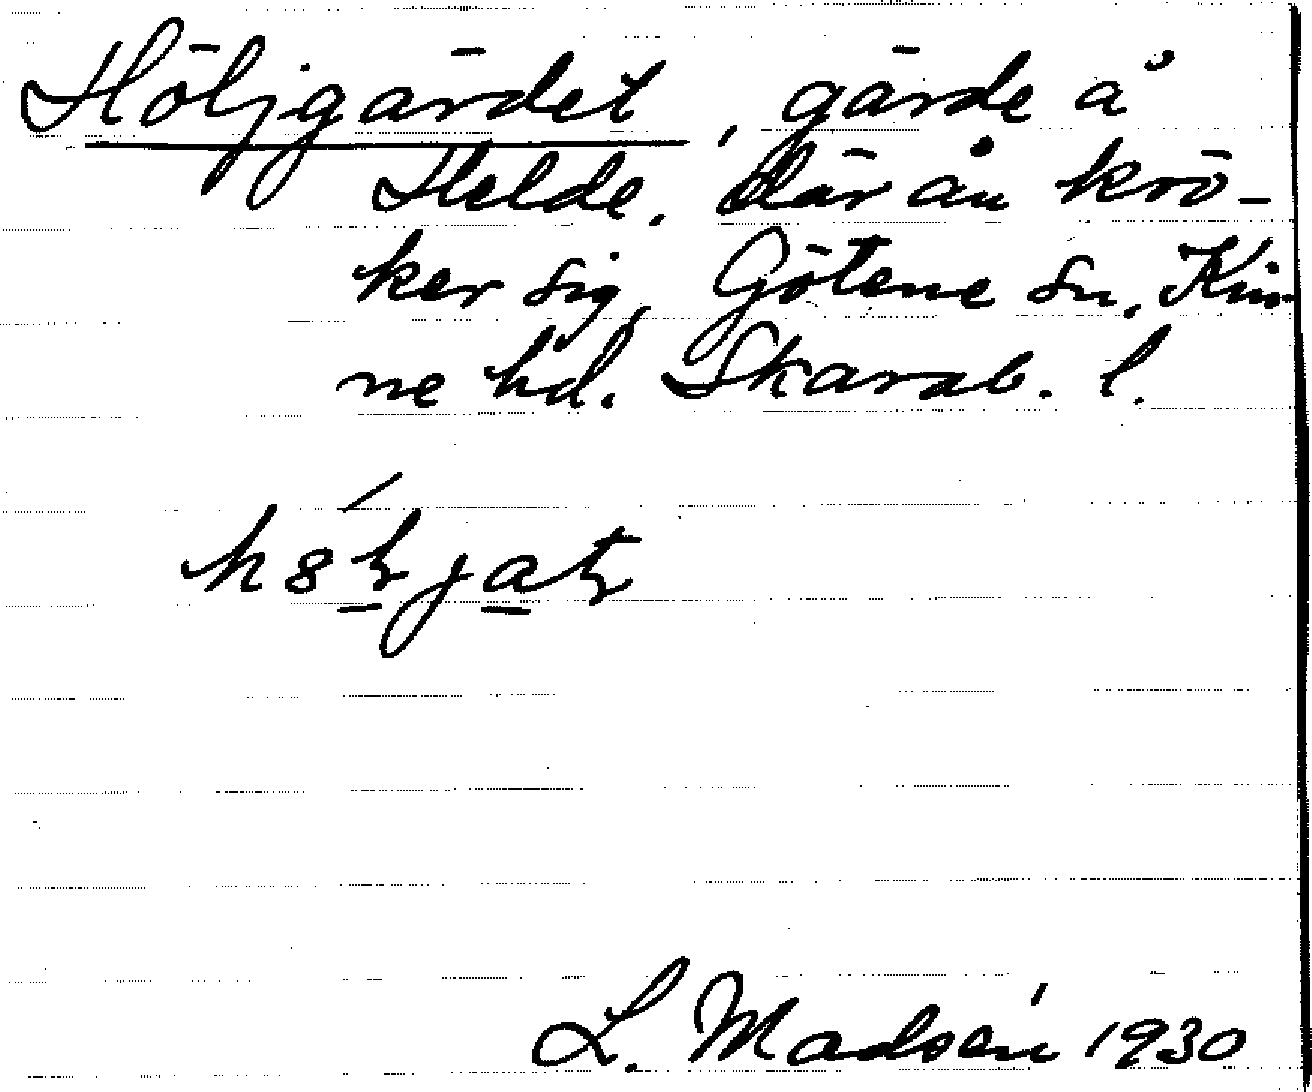 Höljgärdet, gärde å
Helde, där ån krö-
ker sig, Götene sn, Kin-
ne hd. Skarab. l.
L. Madsén 1930